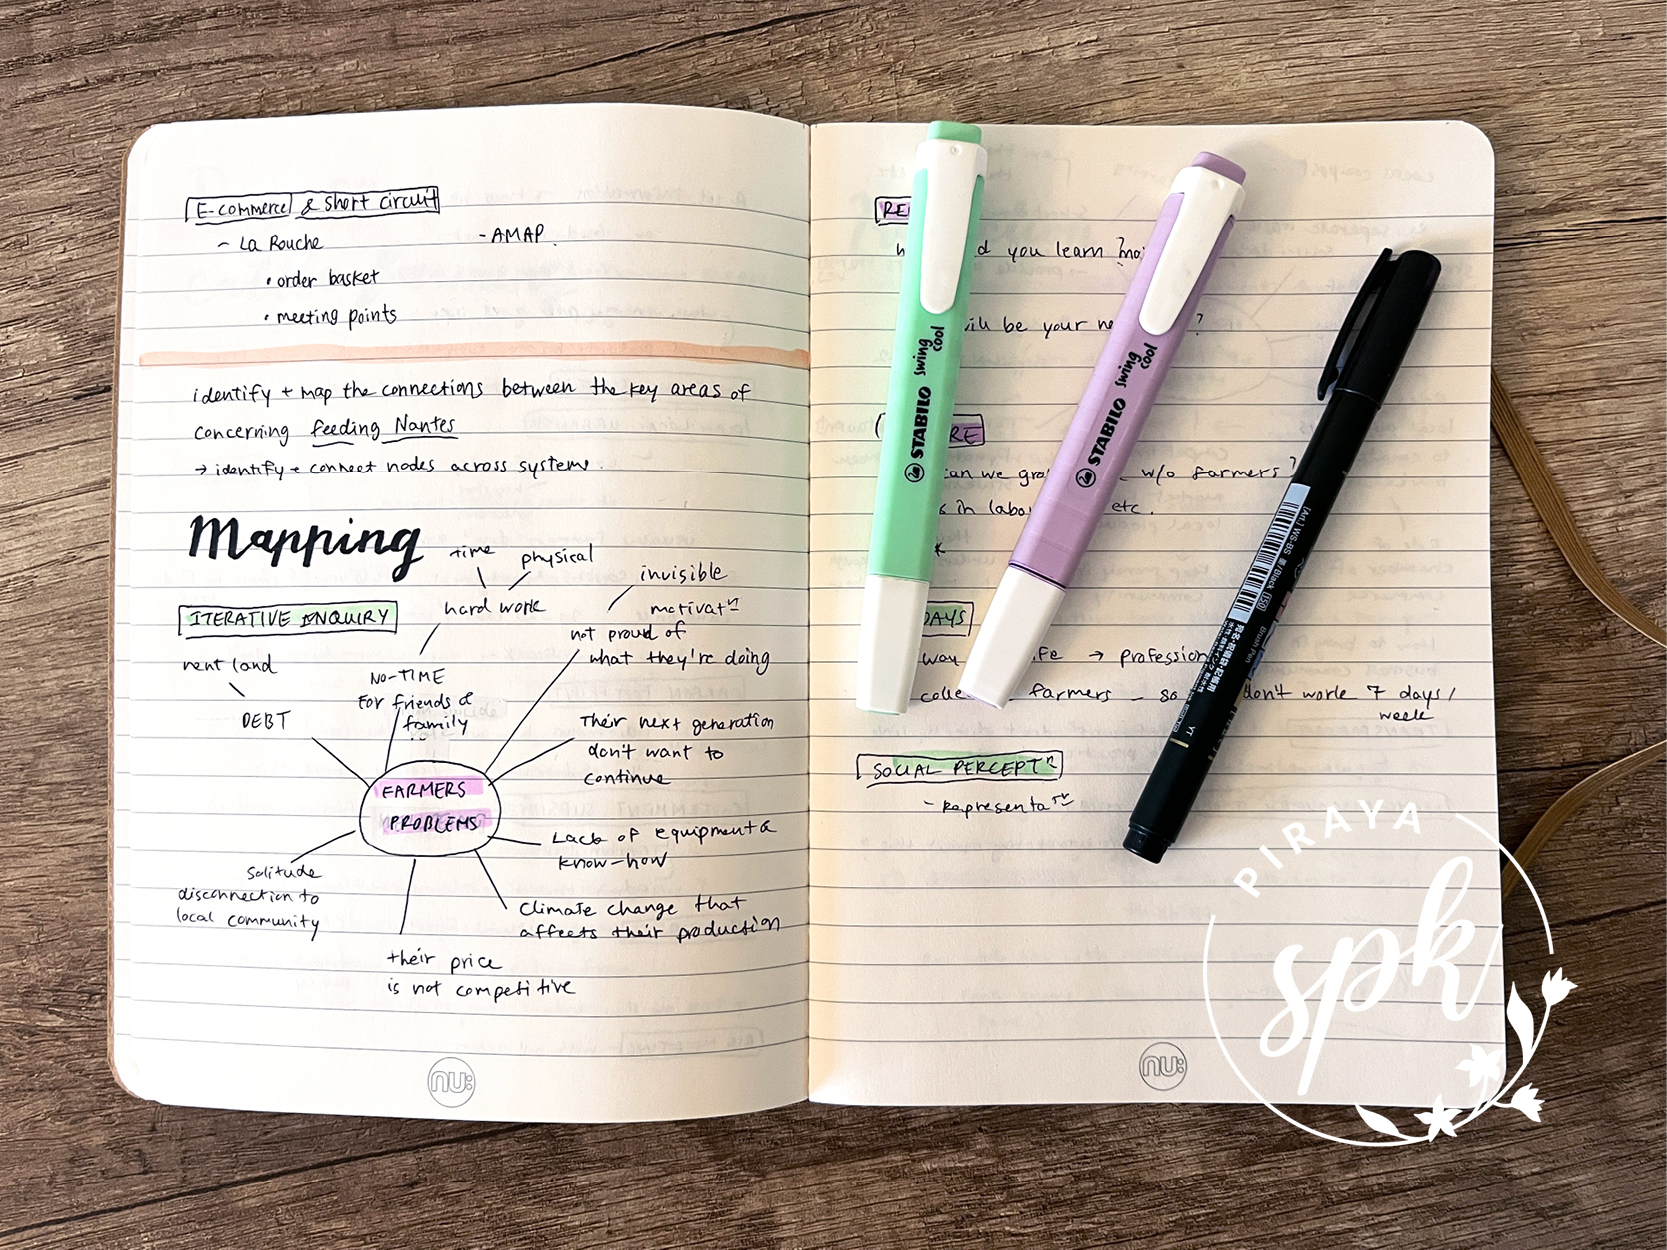 E-commerce & short circuit
- La Rouche
- AMAP.
• order basket
• meeting points
identify + map the connections between the key areas of
concerning feeding Nantes
→ identify + connect nodes across systems.
Mapping
ITERATIVE ENQUIRY
time
physical
hard work
NO-TIME
For friends &
family
invisible
motivat
not proud of
what they're doing
rent land
DEBT
Their next generation
don't want to
continue
FARMERS
PROBLEMS
Lack of equipment &
know-how
Solitude
disconnection to
local community
Climate change that
affects their production
their price
is not competitive
nu:
you learn
be your
?
RE
can we w/o farmers?
in etc.
DAYS
way → profession
farmers - so don't work 7 days/
week
SOCIAL PERCEPT
- Representa
nu:
STABILO swing cool
STABILO swing cool
(Art.) WS-BS 黒/Black (150)
Brush Pen
PIRAYA
spk